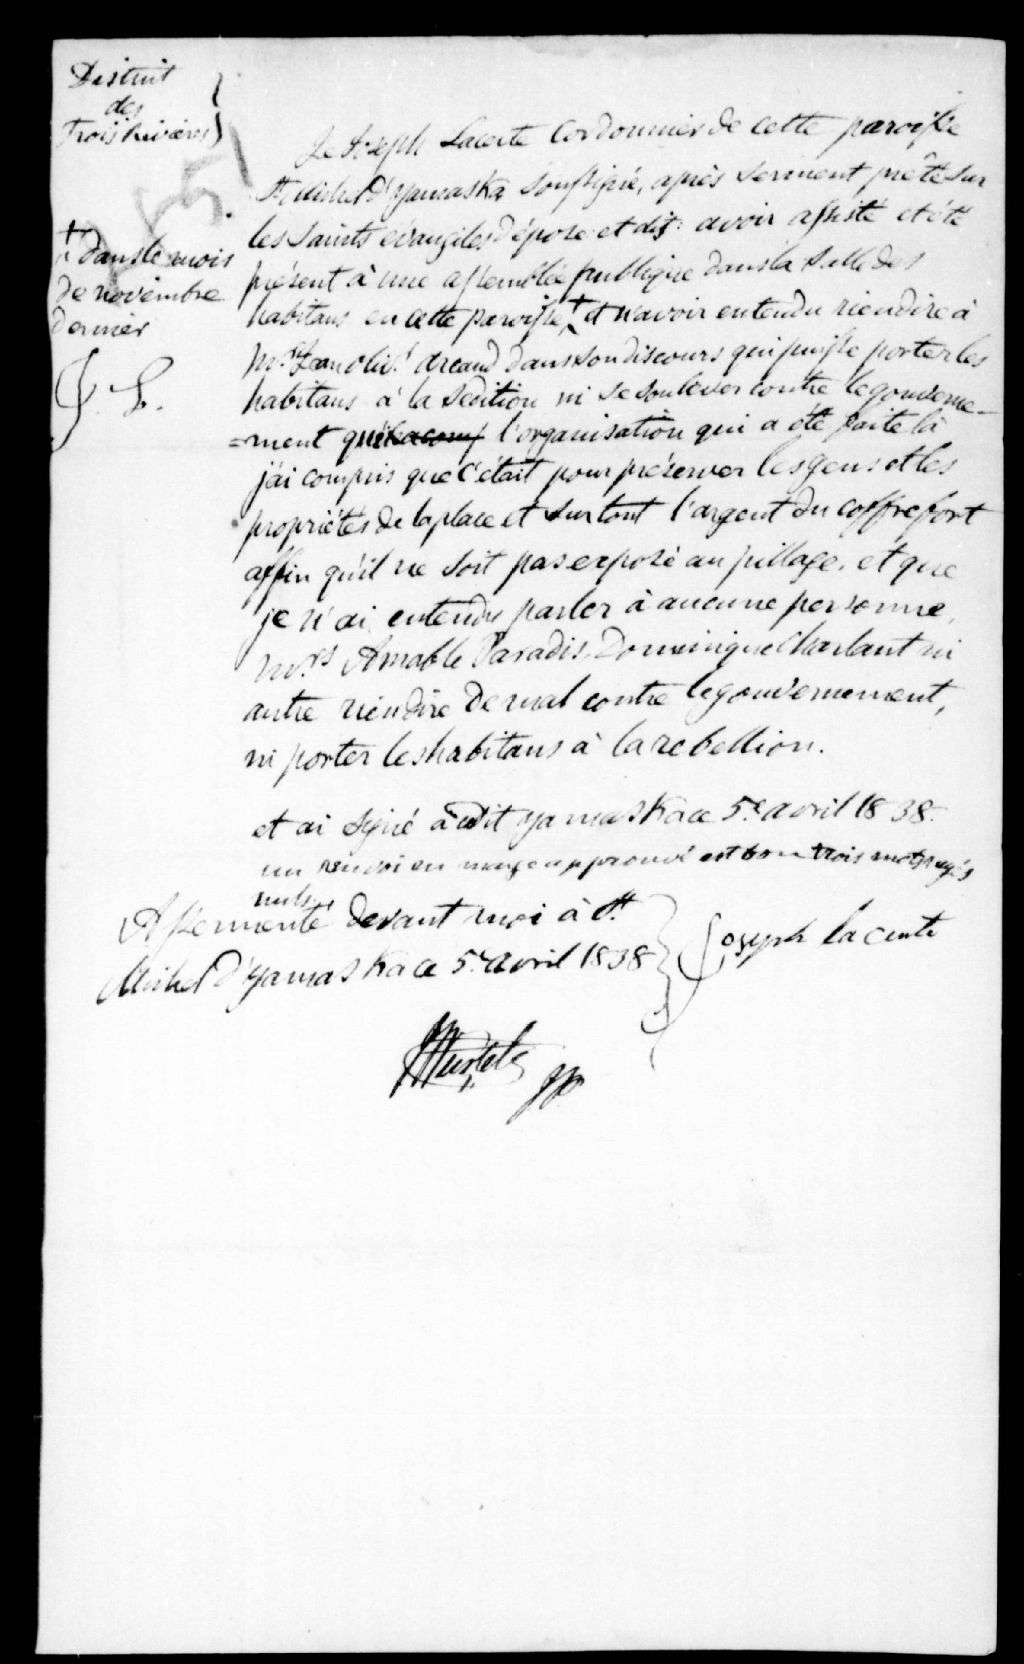 District
des
Trois Rivières
Je Joseph Lacerte Cordonnier de cette paroisse
St. Michel d'Yamaska Soussigné, après serment prêté sur
les Saints évangiles dépose et dit: avoir assisté et été
présent à une assemblée publique dans la Salle des
habitans en cette paroisse + et n'avoir entendu rien dire à
+ dans le mois
de novembre
dernier
J. L.
Mr. Jean Oliv. Arcand dans son discours qui puisse porter les
habitans à la Sédition ni se soulever contre le gouverne-
=ment que l'organisation qui a été faite là
j'ai compris que c'était pour préserver les gens et les
propriétés de la place et surtout l'argent du coffre fort
affin qu'il ne soit pas exposé au pillage. et que
je n'ai entendu parler à aucune personne,
Mrs. Amable Paradis, Dominique Charlant ni
autre rien dire de mal contre le gouvernement,
ni porter les habitans à la rebellion.
et ai signé audit yamaska ce 5e. avril 1838.
un renvoi en marge approuvé est bon trois mots rayés
nuls.
Assermenté devant moi à St.
Michel d'yamaska ce 5e. avril 1838
Joseph lacerte
JP